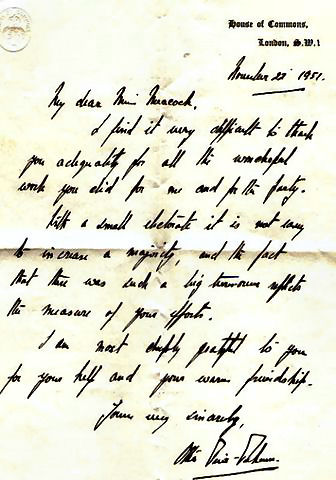 House of Commons,
London, S.W.1
November 22 1951.
My dear Miss Meacock,
I find it very difficult to thank
you adequately for all the wonderful
work you did for me and for the party.
With a small electorate it is not easy
to increase a majority, and the fact
that there was such a big turnover reflects
the measure of your efforts.
I am most deeply grateful to you
for your help and your warm friendship.
Yours very sincerely,